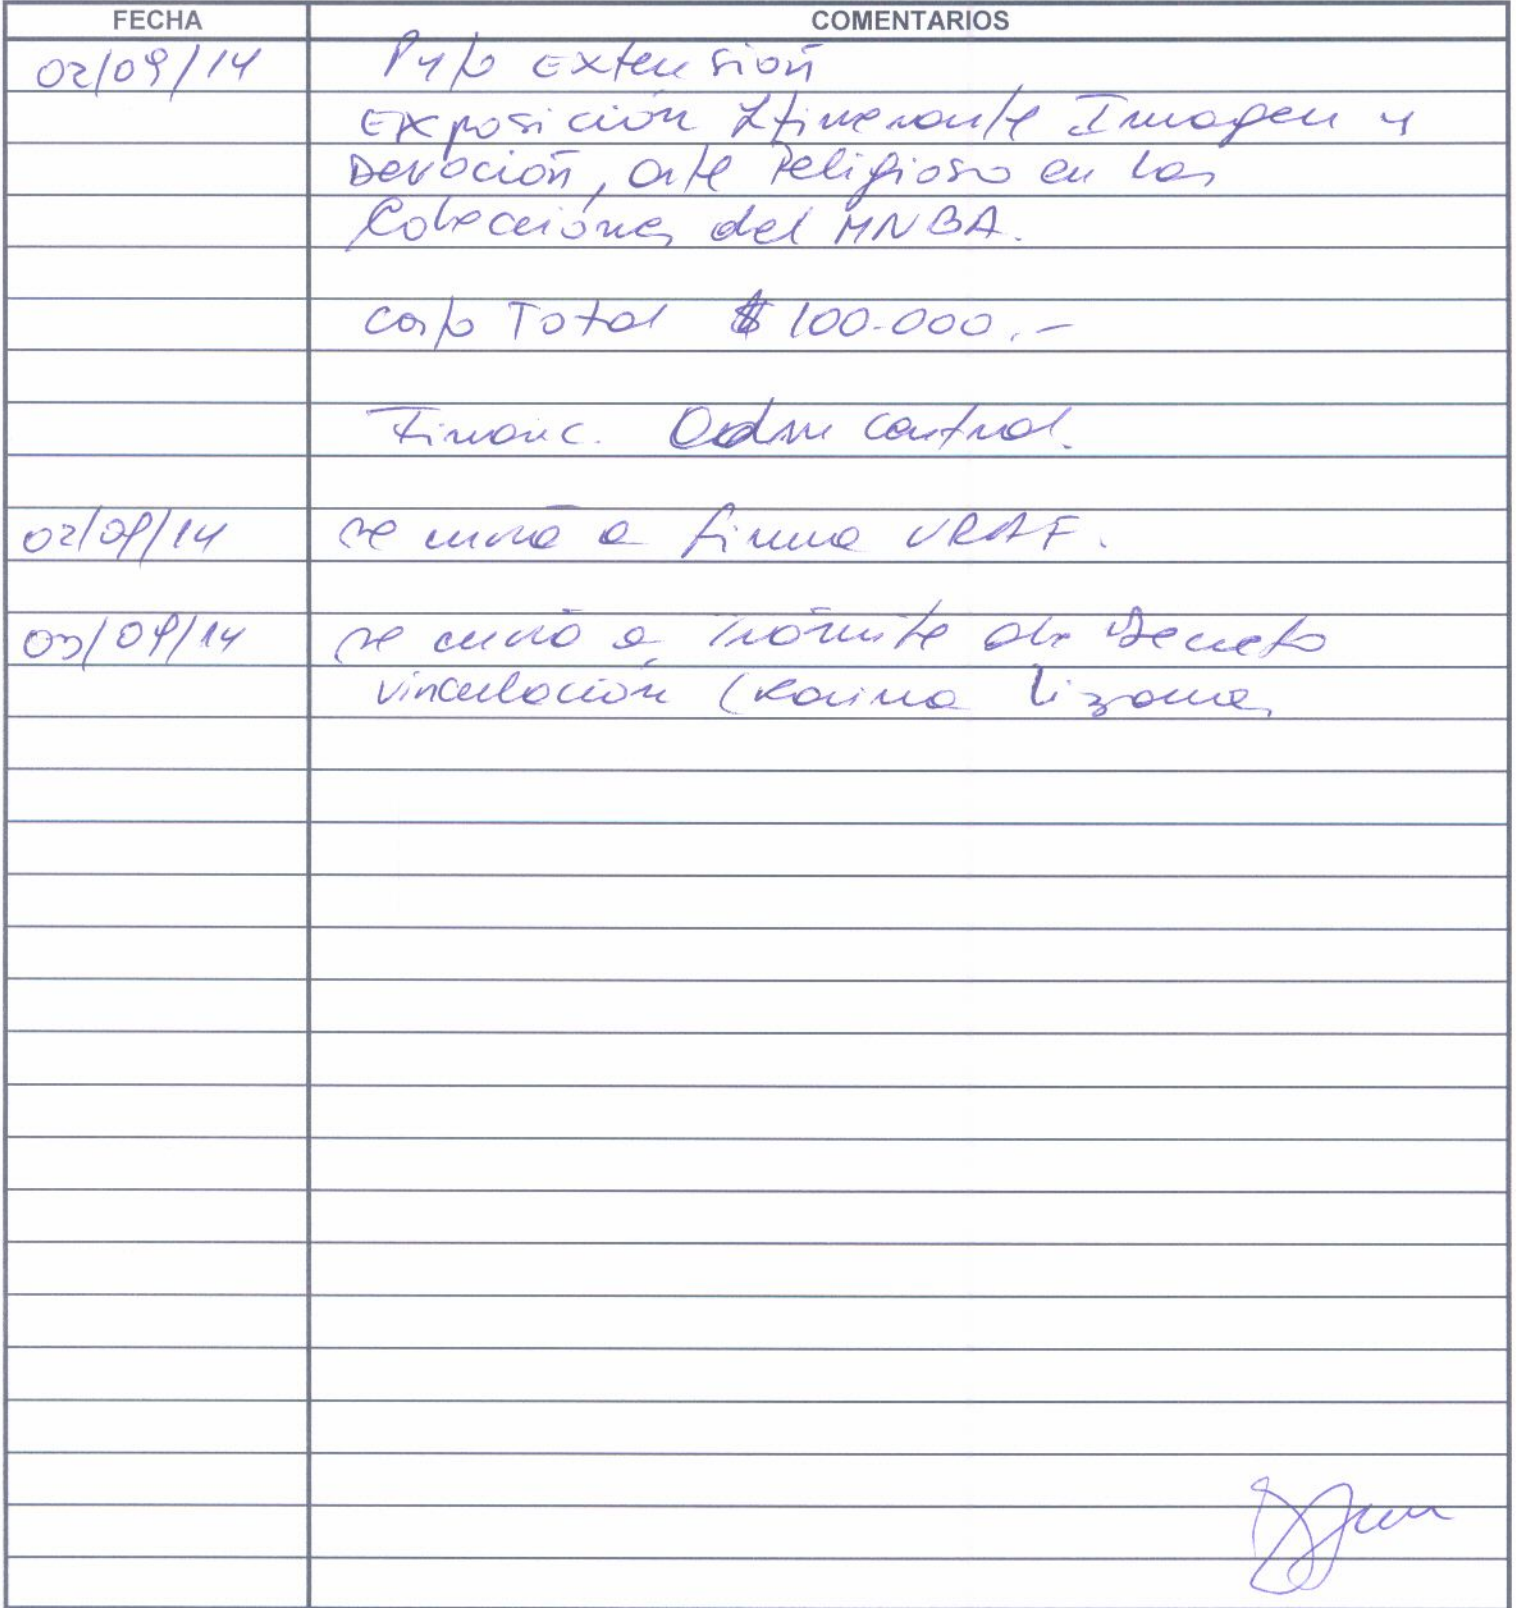 FECHA COMENTARIOS
02/09/14 Pyto Extensión
Exposición Itinerante Imagen y
Devoción, arte Religioso en las
Colecciones del MNBA.
Costo Total $ 100.000.-
Financ. Adm central.
02/09/14 se envió a firma VRAF.
03/09/14 se envió a Trámite de Decreto
vinculación (Karina Lizama